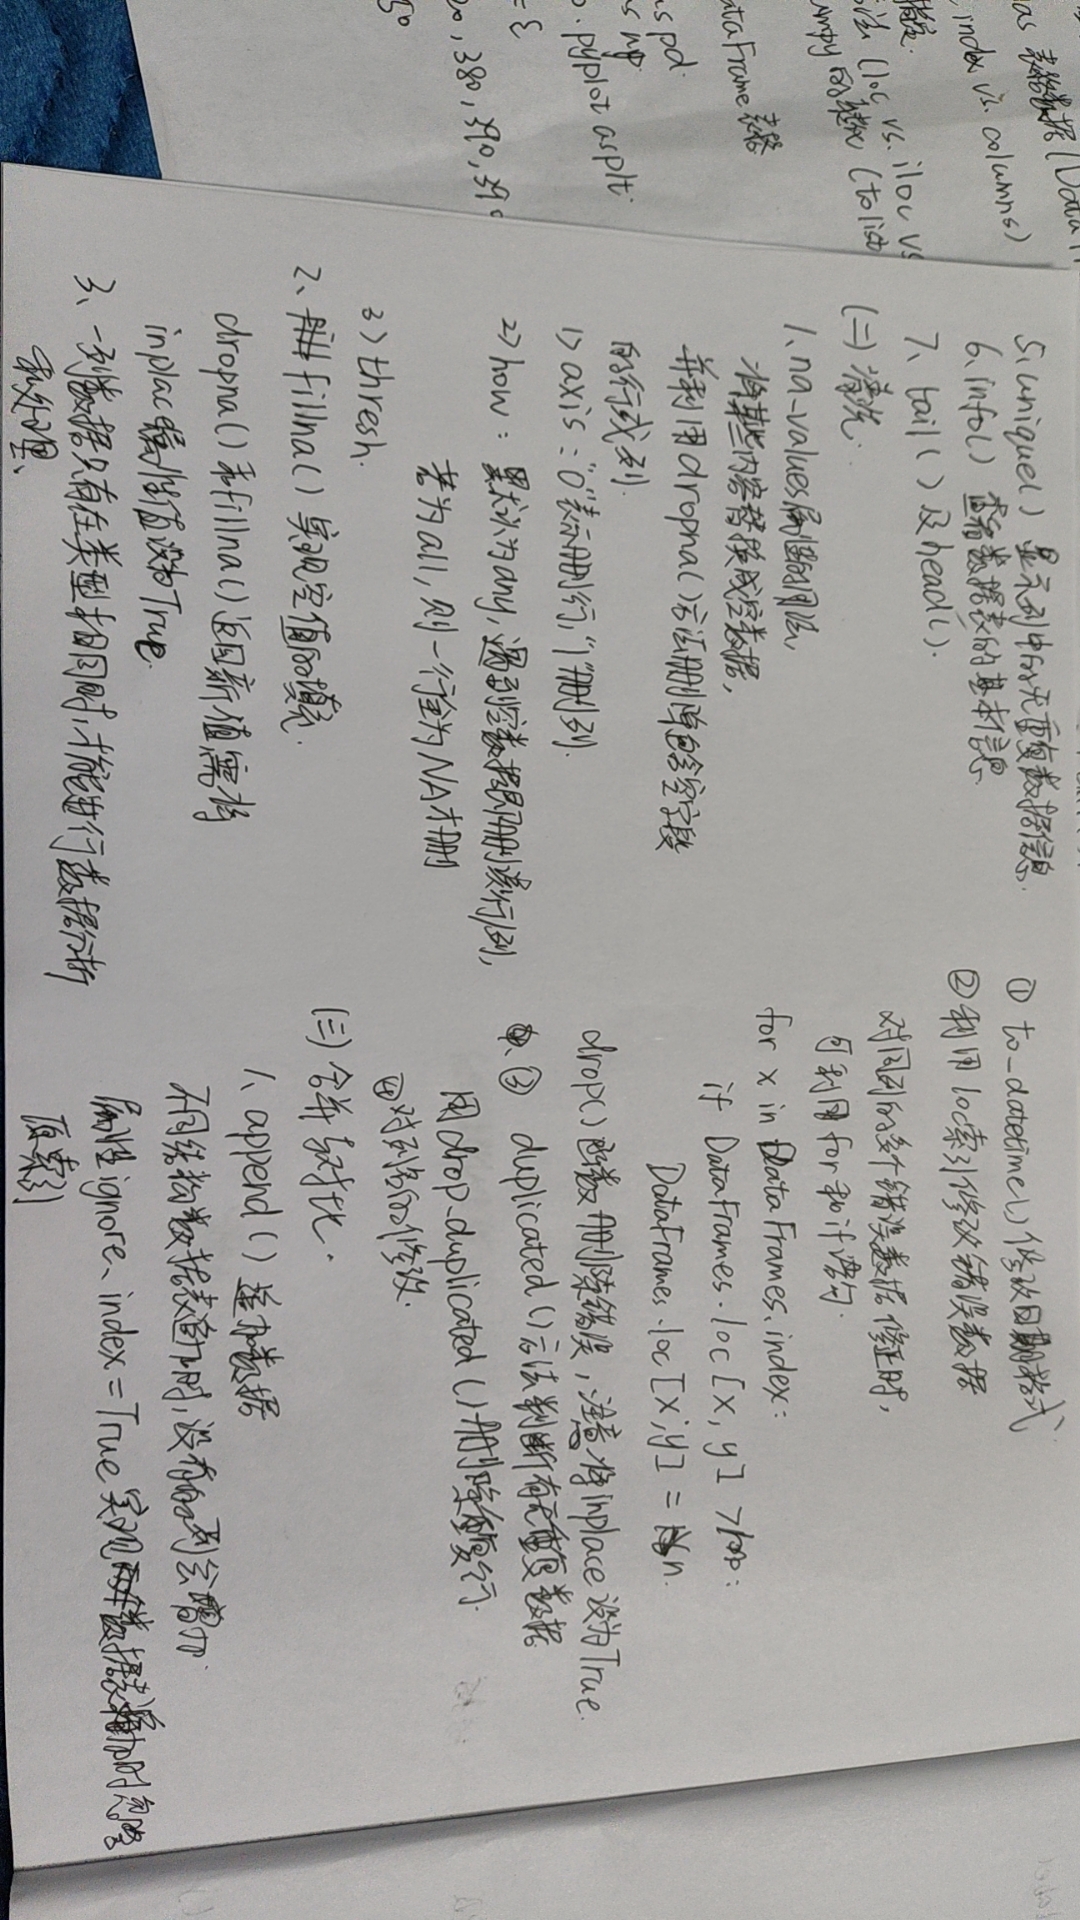 as 表格数据(Data
index vs. columns)
方法(loc vs. iloc vs
umpy的函数(tolist
DataFrame表格
as pd.
s np.
o.pyplot as plt.
= {
, 380, 390, 39
5. unique() 显示列中的无重复数据信息.
6. info() 查看数据表的基本信息
7. tail()及head().
(二)清洗.
1. na_values属性
将某些内容替换成空数据,
并利用dropna()方法删除包含空字段
的行或列.
1) axis:"0"表示删行,"1"删列.
2) how:默认为any,遇到空数据即删该行/列,
若为all,则一行全为NA才删
3) thresh.
2、fillna()实现空值的填充.
dropna()和fillna()返回新值需将
inplace属性值设为True.
3、一列数据只有在类型相同时,才能进行数据分析
和处理、
① to_datetime()修改日期格式
②利用loc索引修改错误数据
对同列的多个错误数据修正时,
可利用for和if语句.
for x in DataFrames.index:
if DataFrames.loc[x,y] >100:
DataFrames.loc[x,y] = n.
drop()函数删除错误,注意将inplace设为True.
③ duplicated()方法判断有无重复数据
用drop_duplicated()删除重复行.
④对列名的修改.
(三)合并与转化.
1、append()追加数据
不同结构数据表追加时,没有的列会增加.
属性ignore_index=True实现两个数据表追加时忽略
原索引